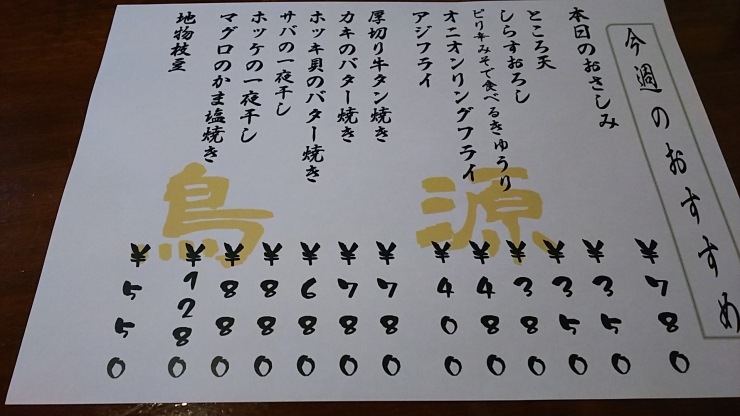 今週のおすすめ
本日のおさしみ ¥780
ところ天 ¥350
しらすおろし ¥350
ピリ辛みそで食べるきゅうり ¥380
オニオンリングフライ ¥480
アジフライ ¥400
厚切り牛タン焼き ¥780
カキのバター焼き ¥780
ホッキ貝のバター焼き ¥680
サバの一夜干し ¥880
ホッケの一夜干し ¥880
マグロのかま塩焼き ¥1280
地物枝豆 ¥550
鳥源